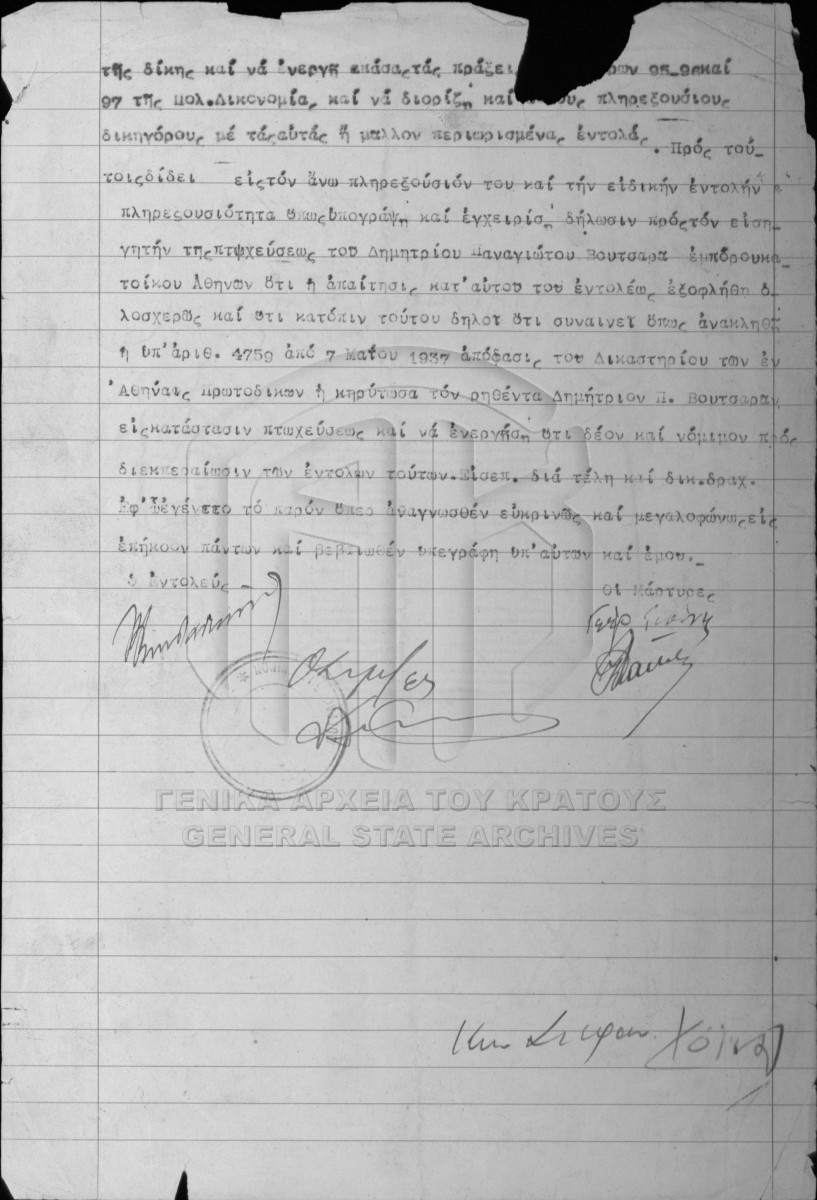 τῆς δίκης καί νά ἐνεργῇ ἁπάσας τάς πράξει ρων 95-96 καί
97 τῆς Πολ.Δικονομίας καί νά διορίζῃ καί ους πληρεξουσίους
δικηγόρους μέ τάς αὐτάς ἤ μαλλον περιωρισμένας ἐντολάς. Πρός τού-
τοις δίδει εἰς τόν ἄνω πληρεξούσιόν του καί τήν εἰδικήν ἐντολήν
πληρεξουσιότητα ὅπως ὑπογράψῃ καί ἐγχειρίσῃ δήλωσιν πρός τόν εἰση-
γητήν της πτωχεύσεως του Δημητρίου Παναγιώτου Βουτσαρα ἐμπόρου κα-
τοίκου Ἀθηνων ὅτι ἡ ἀπαίτησις κατ'αὐτου του ἐντολέως ἐξοφλήθη ὁ-
λοσχερῶς καί ὅτι κατόπιν τούτου δηλοι ὅτι συναινει ὅπως ἀνακληθῇ
ἡ ὑπ'ἀριθ. 4759 ἀπό 7 Μαΐου 1937 ἀπόφασις του Δικαστηρίου των ἐν
Ἀθήναις Πρωτοδικων ἡ κηρύτωσα τόν ρηθέντα Δημήτριον Π. Βουτσαραν
εἰς κατάστασιν πτωχεύσεως καί νά ἐνεργήσῃ ὅτι δέον καί νόμιμον πρός
διεκπεραίωσιν των ἐντολων τούτων.Εἰσεπ. διά τέλη καί δικ.δραχ.
Ἐφ'ᾧ ἐγένετο τό παρόν ὅπερ ἀναγνωσθέν εὐκρινῶς καί μεγαλοφώνως εἰς
ἐπήκοον πάντων καί βεβαιωθέν ὑπεγράφη ὑπ'αὐτων καί ἐμου.-
Ὁ Ἐντολεύς Οἱ Μάρτυρες
ΓΕΝΙΚΑ ΑΡΧΕΙΑ ΤΟΥ ΚΡΑΤΟΥΣ
GENERAL STATE ARCHIVES